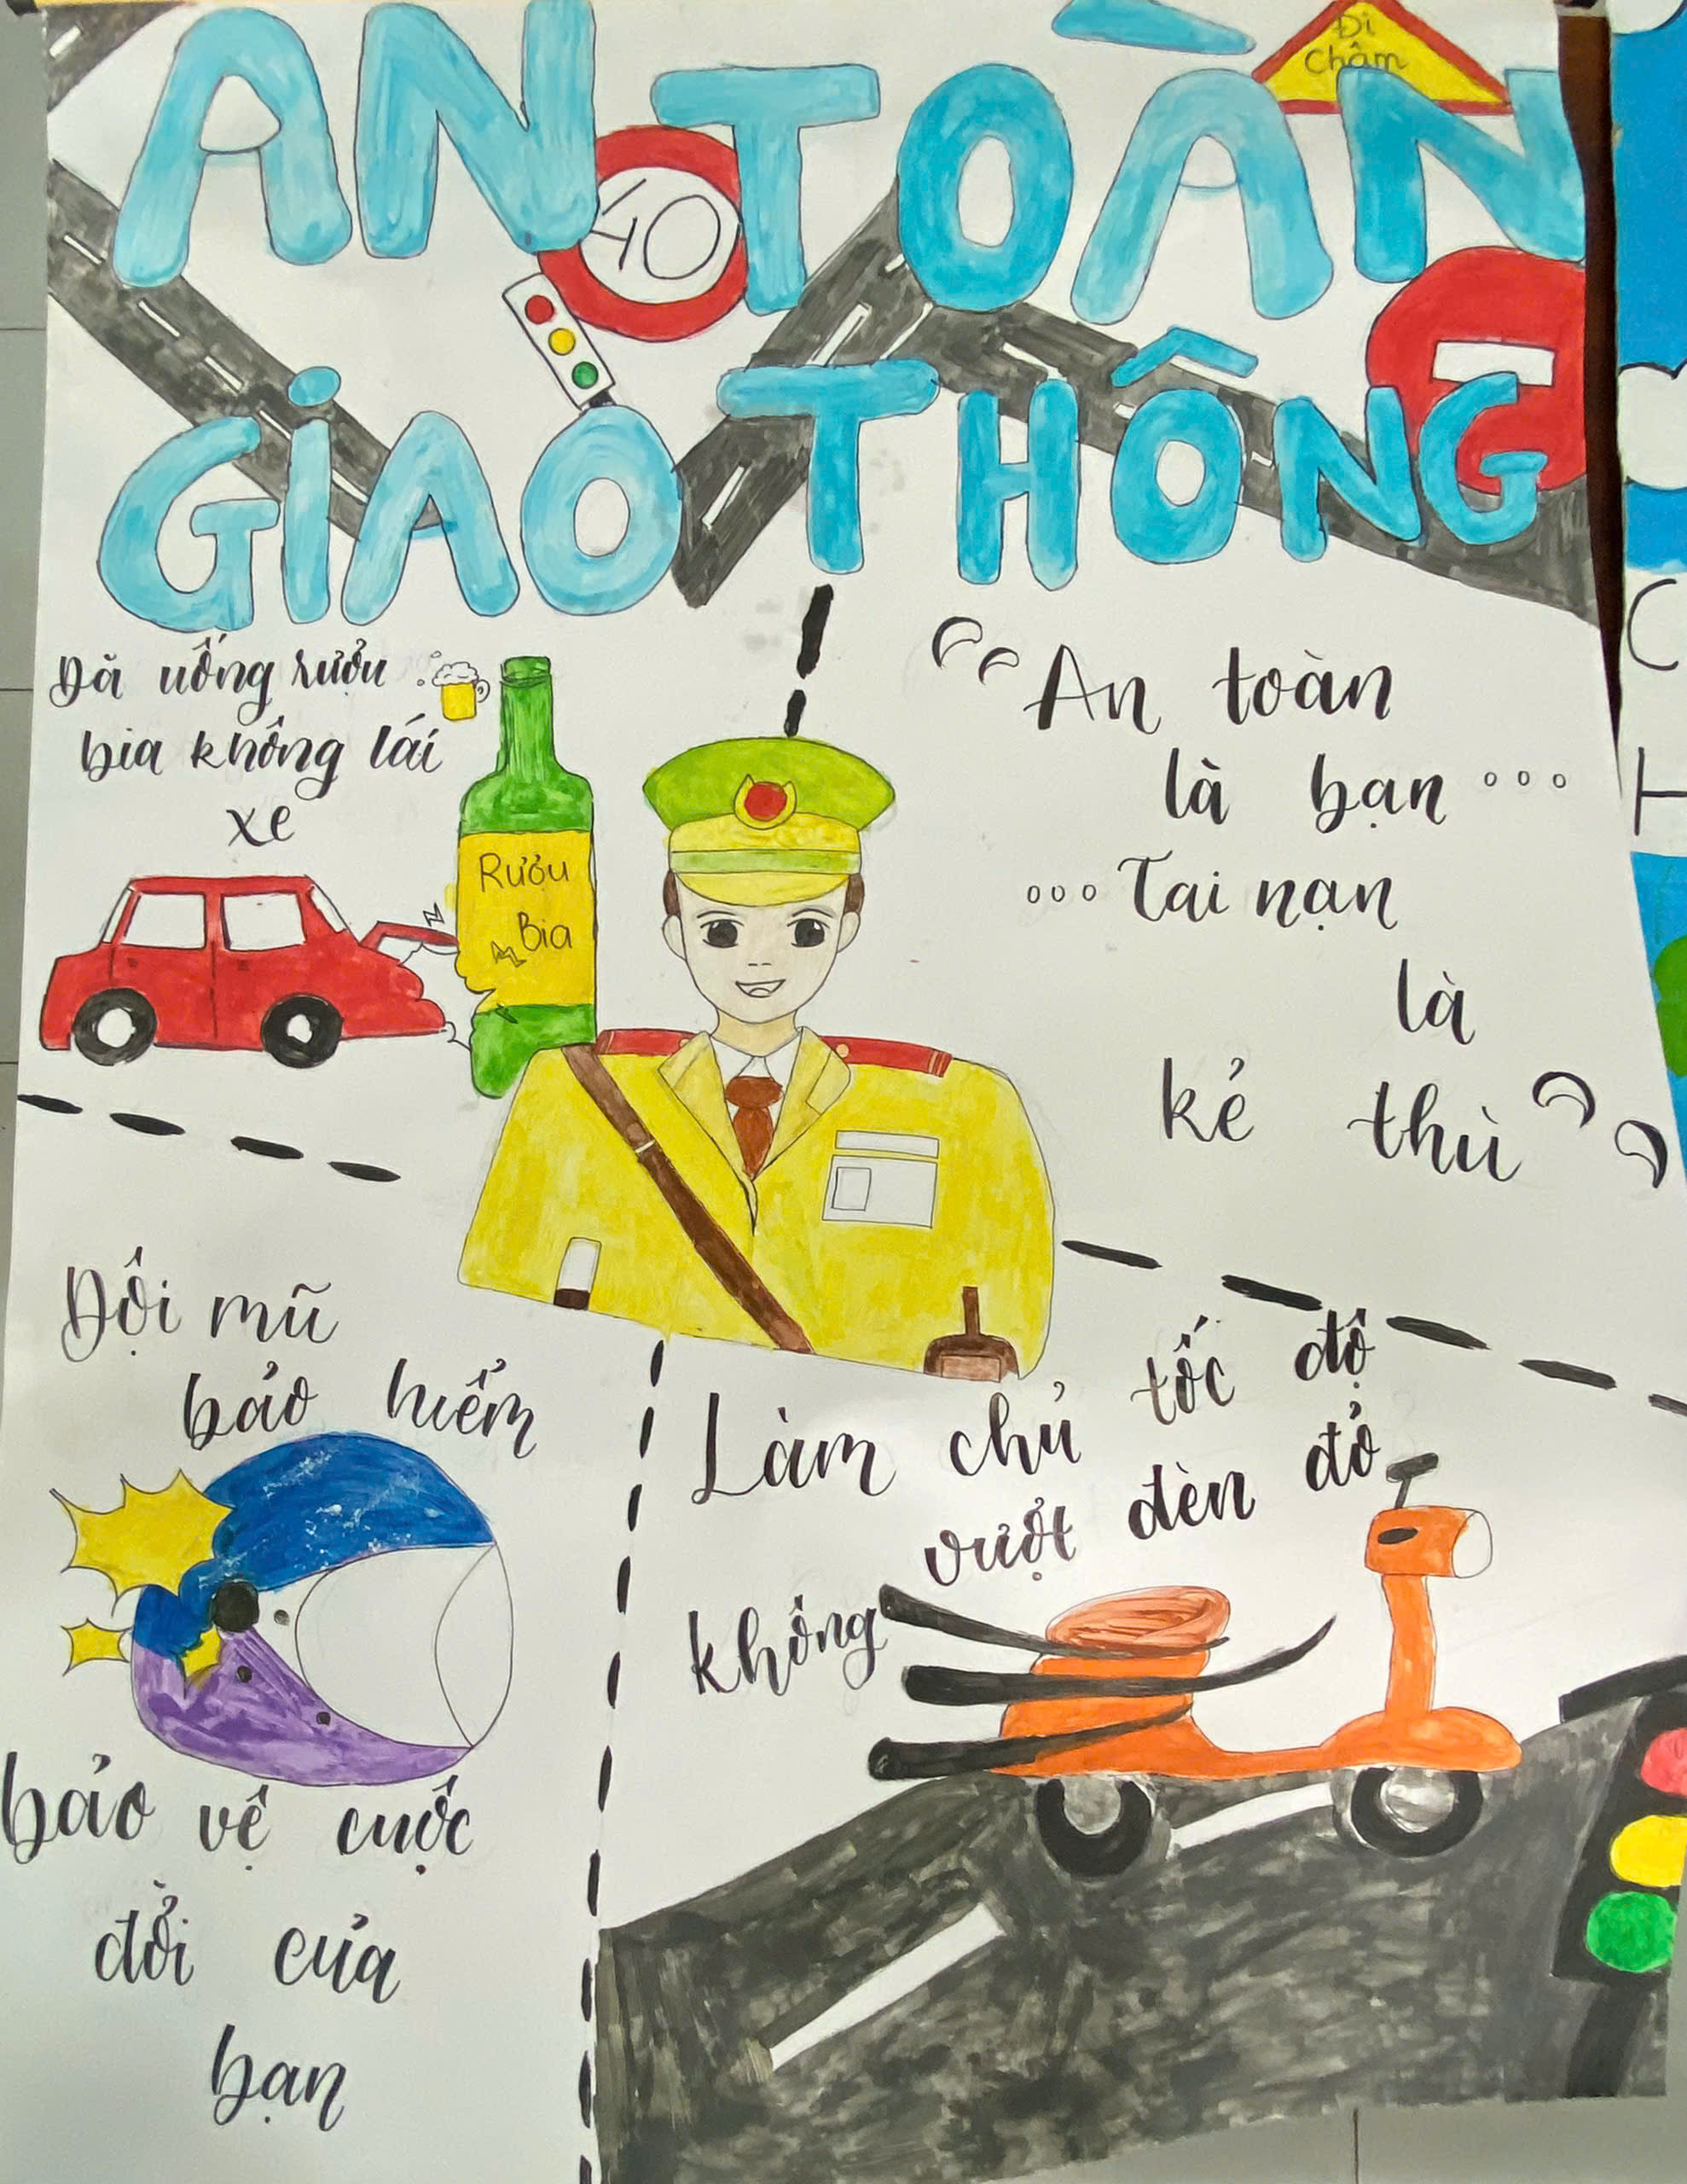 AN TOÀN
Đi
Chậm
40
GIAO THÔNG
Đã uống rượu
bia không lái
xe
Rượu
Bia
“An toàn
là bạn ...
... Tai nạn
là
kẻ thù”
Đội mũ
bảo hiểm
bảo vệ cuộc
đời của
bạn
Làm chủ tốc độ
không vượt đèn đỏ
C
H